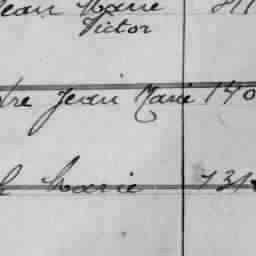 Jean Marie
Victor
Jean Marie 140
Marie 731